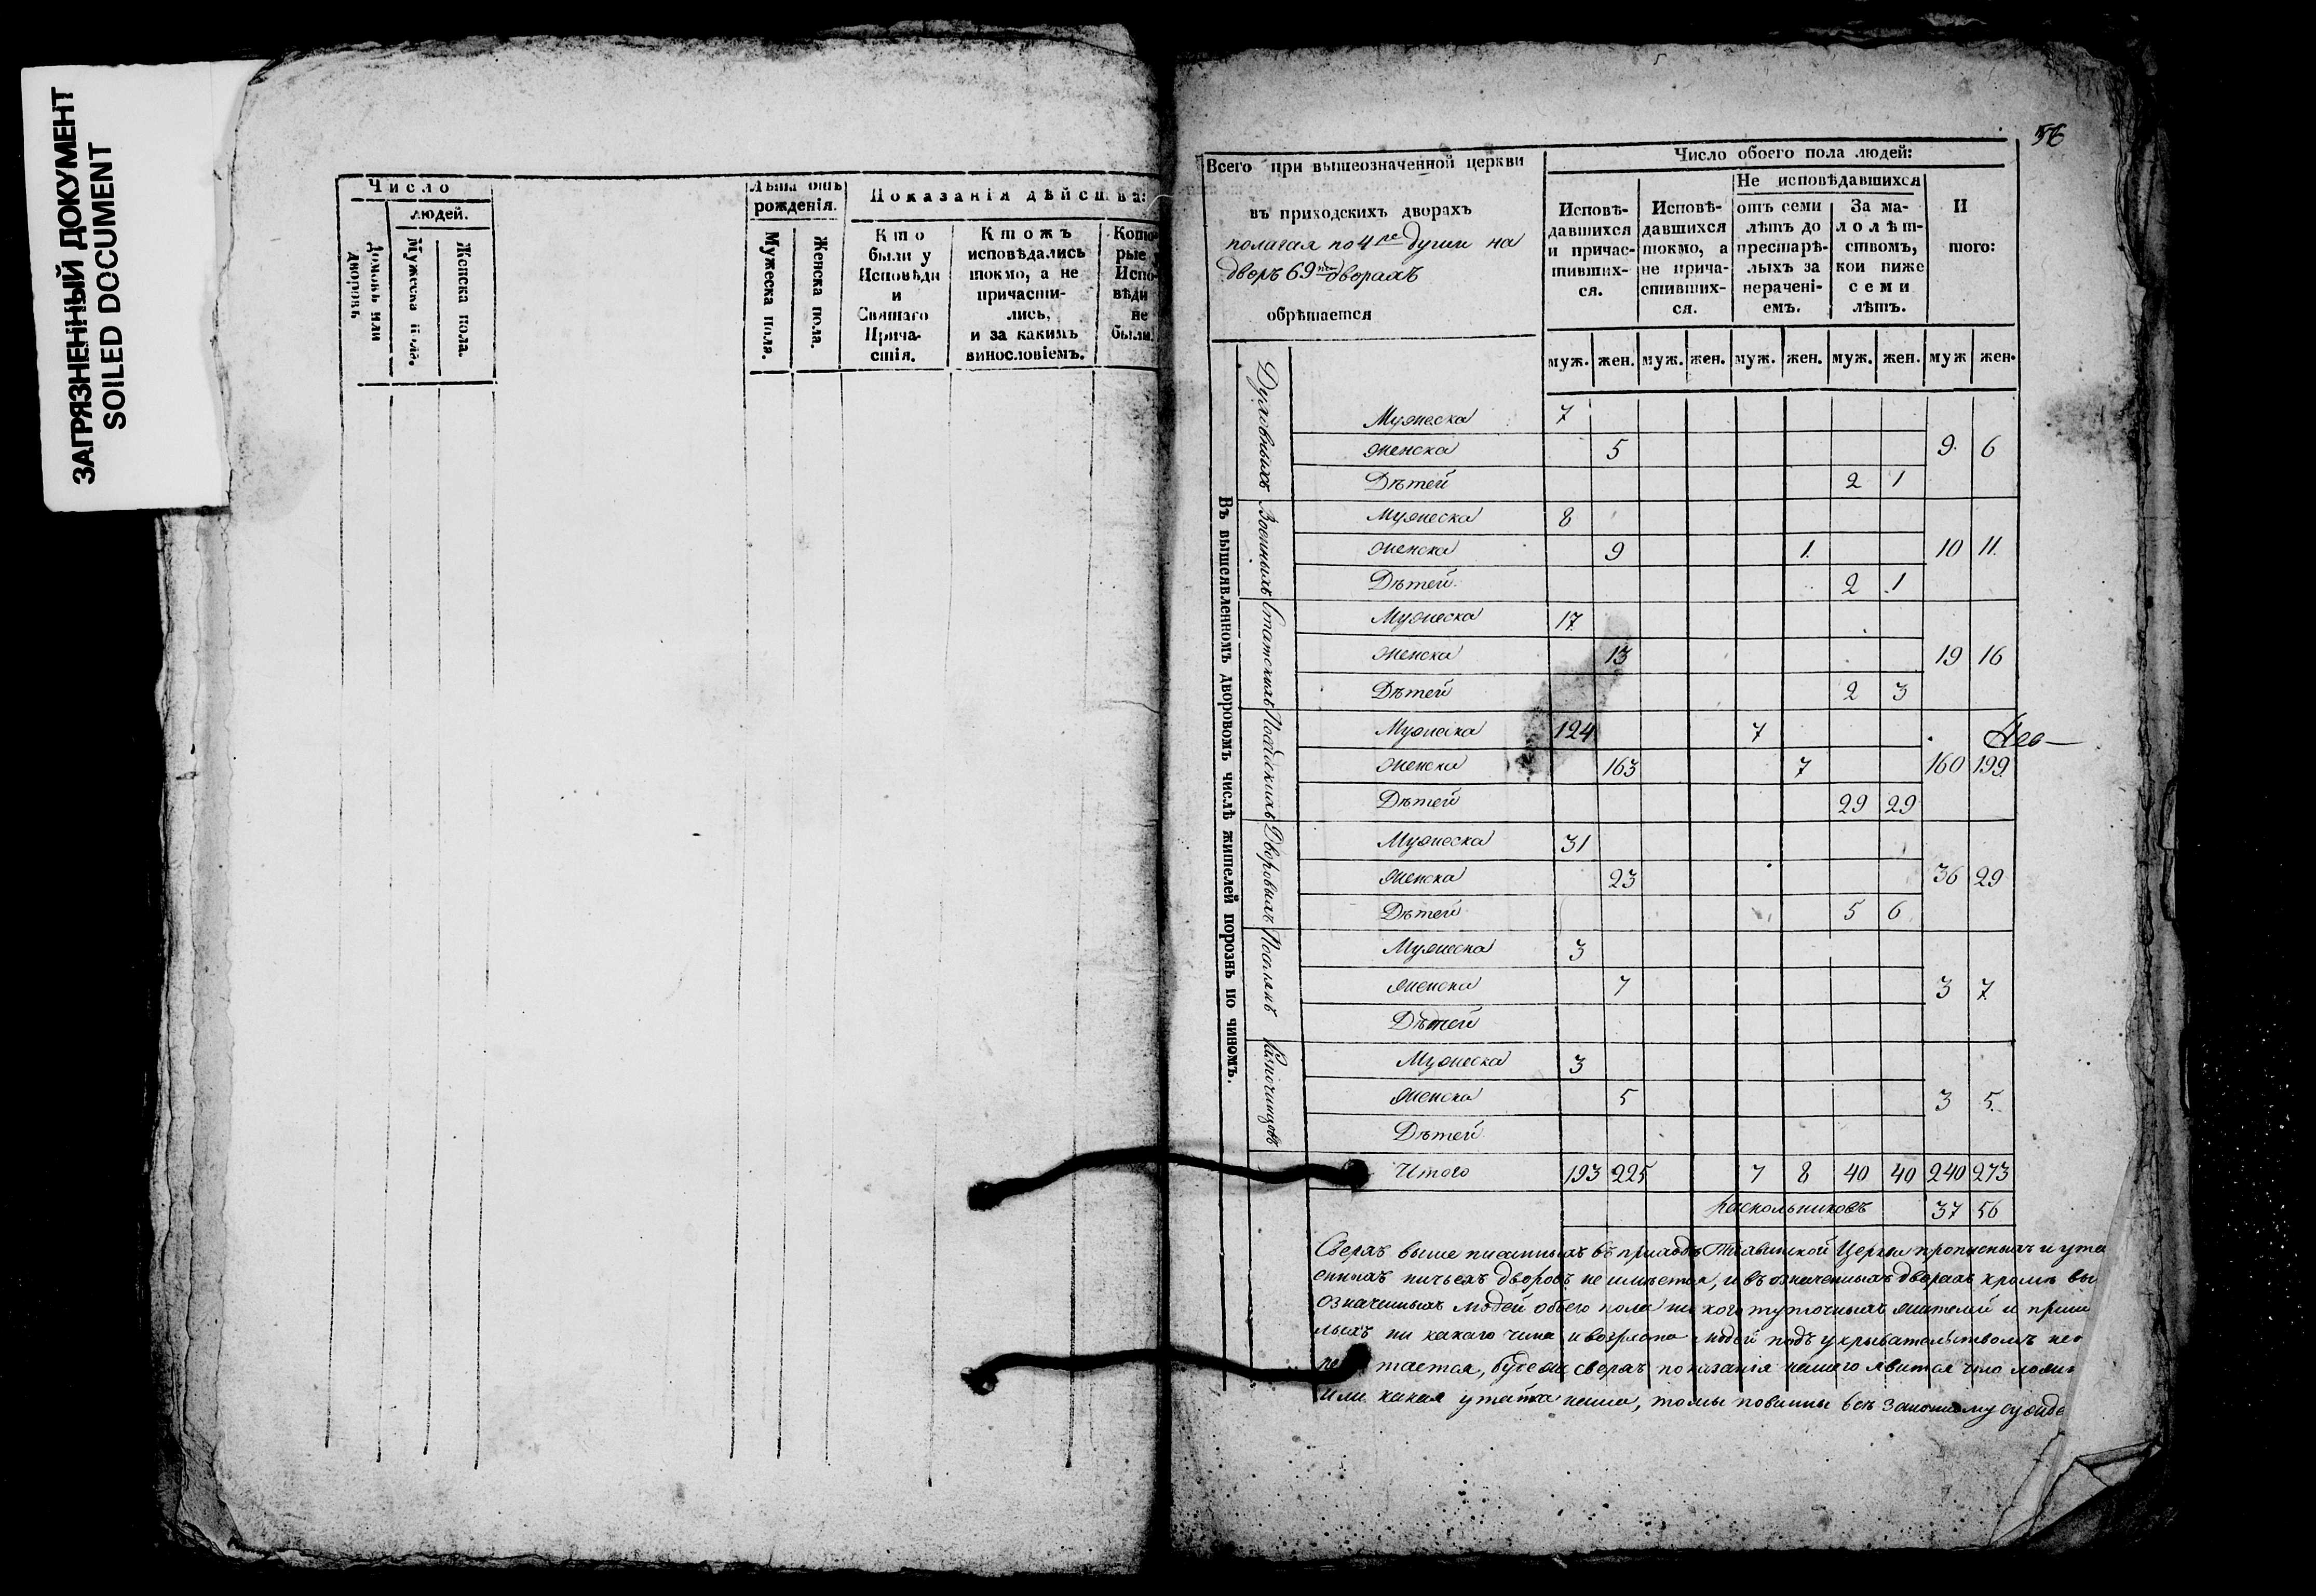 ЗАГРЯЗНЕННЫЙ ДОКУМЕНТ
SOILED DOCUMENT
Число
людей.
Домовъ или дворовъ.
Мужеска пола.
Женска пола.
Лѣта отъ рожденія.
Мужеска пола.
Женска пола.
Показанія дѣйства:
Кто были у Исповѣди и Святаго Причастія.
Ктожъ исповѣдались токмо, а не причастились, и за какимъ винословіемъ.
Которые у Исповѣди не были.
56
Всего при вышеозначенной церкви
въ приходскихъ дворахъ
полагая по 4ре души на
дворъ 69ти дворахъ
обрѣтается
Число обоего пола людей:
Исповѣдавшихся и причастившихся.
Исповѣдавшихся токмо, а не причастившихся.
Не исповѣдавшихся
отъ семи лѣтъ до престарѣлыхъ за нераченіемъ.
За малолѣтствомъ, кои ниже семи лѣтъ.
Итого:
муж. жен. муж. жен. муж. жен. муж. жен. муж жен.
Въ вышеявленномъ дворовомъ числѣ жителей порознь по чиномъ.
Духовныхъ
Мужеска 7
Женска 5 9 6
Дѣтей 2 1
Военныхъ
Мужеска 8
Женска 9 1 10 11
Дѣтей 2 1
Статскихъ
Мужеска 17
Женска 13 19 16
Дѣтей 2 3
Посадскихъ
Мужеска 124 7
Женска 163 7 160 199
Дѣтей 29 29
Дворовыхъ
Мужеска 31
Женска 23 36 29
Дѣтей 5 6
Поселянъ
Мужеска 3
Женска 7 3 7
Дѣтей
Разночинцовъ
Мужеска 3
Женска 5 3 5
Дѣтей
Итого 193 225 7 8 40 40 240 273
Раскольниковъ 37 56
Сверхъ выше писанныхъ въ приходѣ церкви прописныхъ и ута
енныхъ ничьехъ дворовъ не имѣется, и въ означенныхъ дворахъ кромѣ вы
означенныхъ людей обоего пола никого тутошныхъ жителей и приш
лыхъ ни какаго чина и возраста людей подъ укрывательствомъ не
тается, буде же сверхъ показанія нашего явится что
или какая утайка наша, то мы повинны всѣ законному